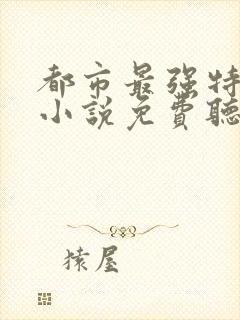 都市最强特
小說免費聽
猿屋